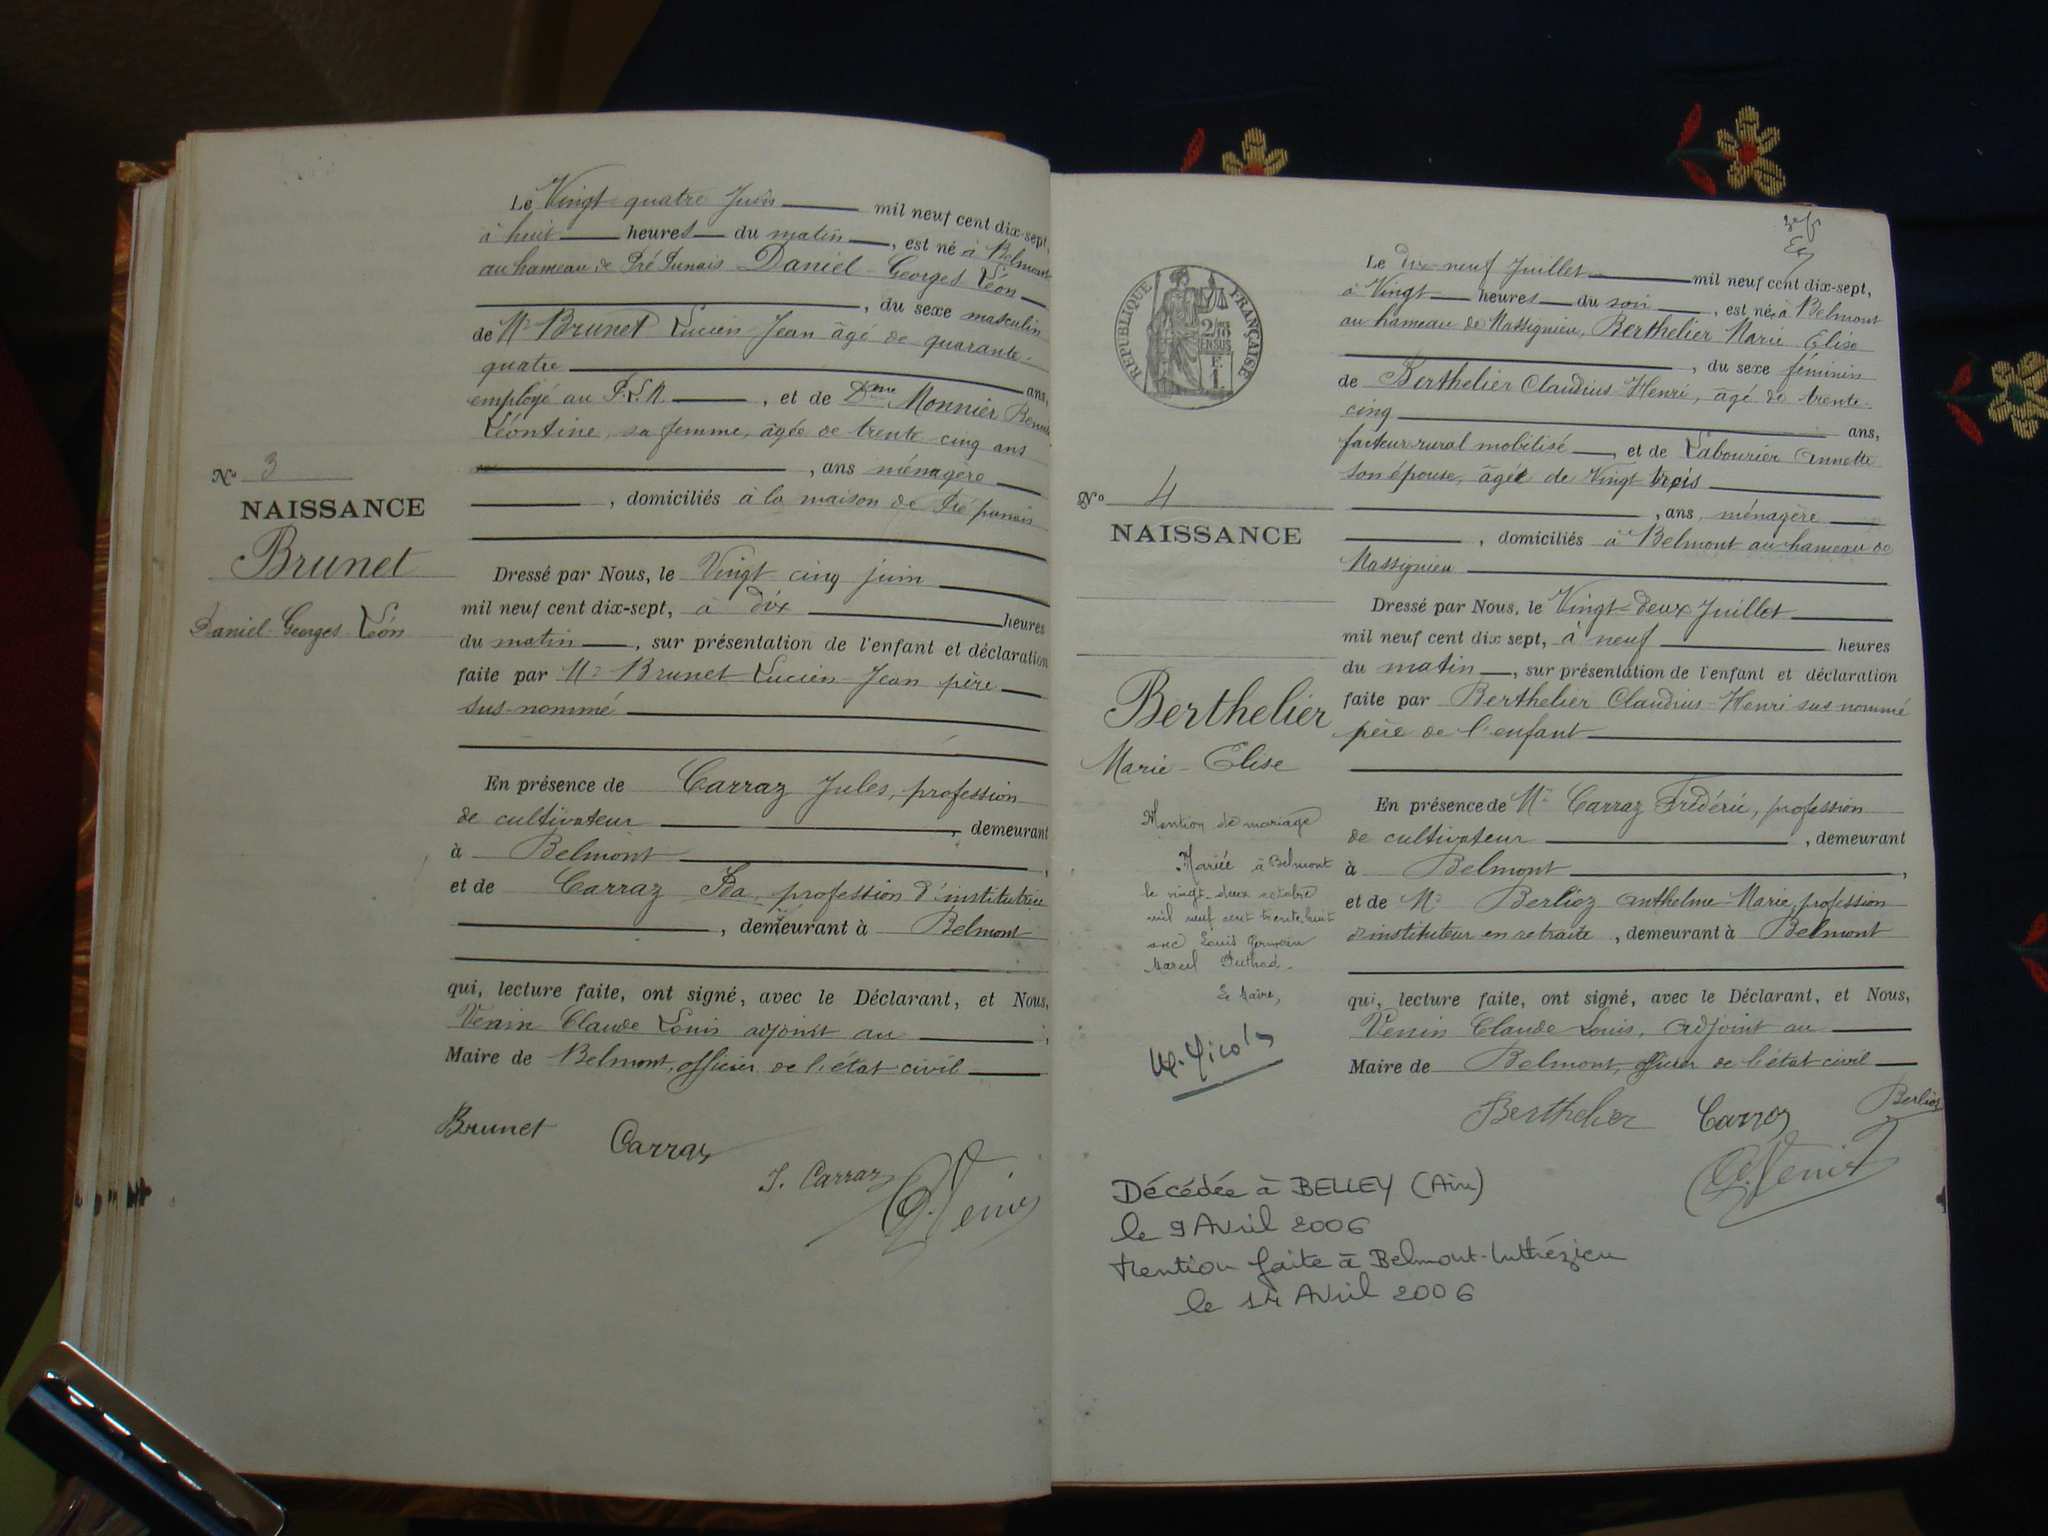 Le Vingt quatre Juin mil neuf cent dix-sept,
à huit heures du matin, est né à Belmont
au hameau de Pré Punais Daniel-Georges Léon
, du sexe masculin
de Mr Brunet Lucien Jean âgé de quarante-
quatre ans,
employé au P.L.M., et de Dme Monnier
Léontine, sa femme, âgée de trente cinq ans
, ans ménagère
, domiciliés à la maison de Pré punais
N° 3
NAISSANCE
Brunet
Daniel-Georges Léon
Dressé par Nous, le Vingt cinq juin
mil neuf cent dix-sept, à dix heures
du matin, sur présentation de l'enfant et déclaration
faite par Mr Brunet Lucien Jean père
sus-nommé
En présence de Carraz Jules, profession
de cultivateur, demeurant
à Belmont,
et de Carraz Ida, profession d'institutrice
, demeurant à Belmont
qui, lecture faite, ont signé, avec le Déclarant, et Nous,
Venin Claude Louis adjoint au
Maire de Belmont, officier de l'état civil
Brunet Carraz
J. Carraz C. Venin
RÉPUBLIQUE FRANÇAISE
2/10
EN SUS
F
1
Le dix neuf Juillet mil neuf cent dix-sept,
à Vingt heures du soir, est née à Belmont
au hameau de Massignieu, Berthelier Marie Elise
, du sexe féminin
de Berthelier Claudius-Henri, âgé de trente-
cinq ans,
facteur rural mobilisé, et de Labourier Annette
son épouse, âgée de Vingt trois
, ans, ménagère
, domiciliés à Belmont au hameau de
Massignieu
N° 4
NAISSANCE
Berthelier
Marie-Elise
Dressé par Nous, le Vingt-deux Juillet
mil neuf cent dix sept, à neuf heures
du matin, sur présentation de l'enfant et déclaration
faite par Berthelier Claudius-Henri sus-nommé
père de l'enfant
En présence de Mr Carraz Frédéric, profession
de cultivateur, demeurant
à Belmont,
et de Mr Berlioz Anthelme-Marie, profession
d'instituteur en retraite, demeurant à Belmont
qui, lecture faite, ont signé, avec le Déclarant, et Nous,
Venin Claude Louis, adjoint au
Maire de Belmont, officier de l'état civil
Berthelier Carraz Berlioz
C. Venin
Mention de mariage
Mariée à Belmont
le vingt-deux octobre
mil neuf cent trente huit
avec Louis Germain
Marcel
Le Maire,
Décédée à BELLEY (Ain)
le 9 Avril 2006
Mention faite à Belmont-Luthézieu
le 14 Avril 2006